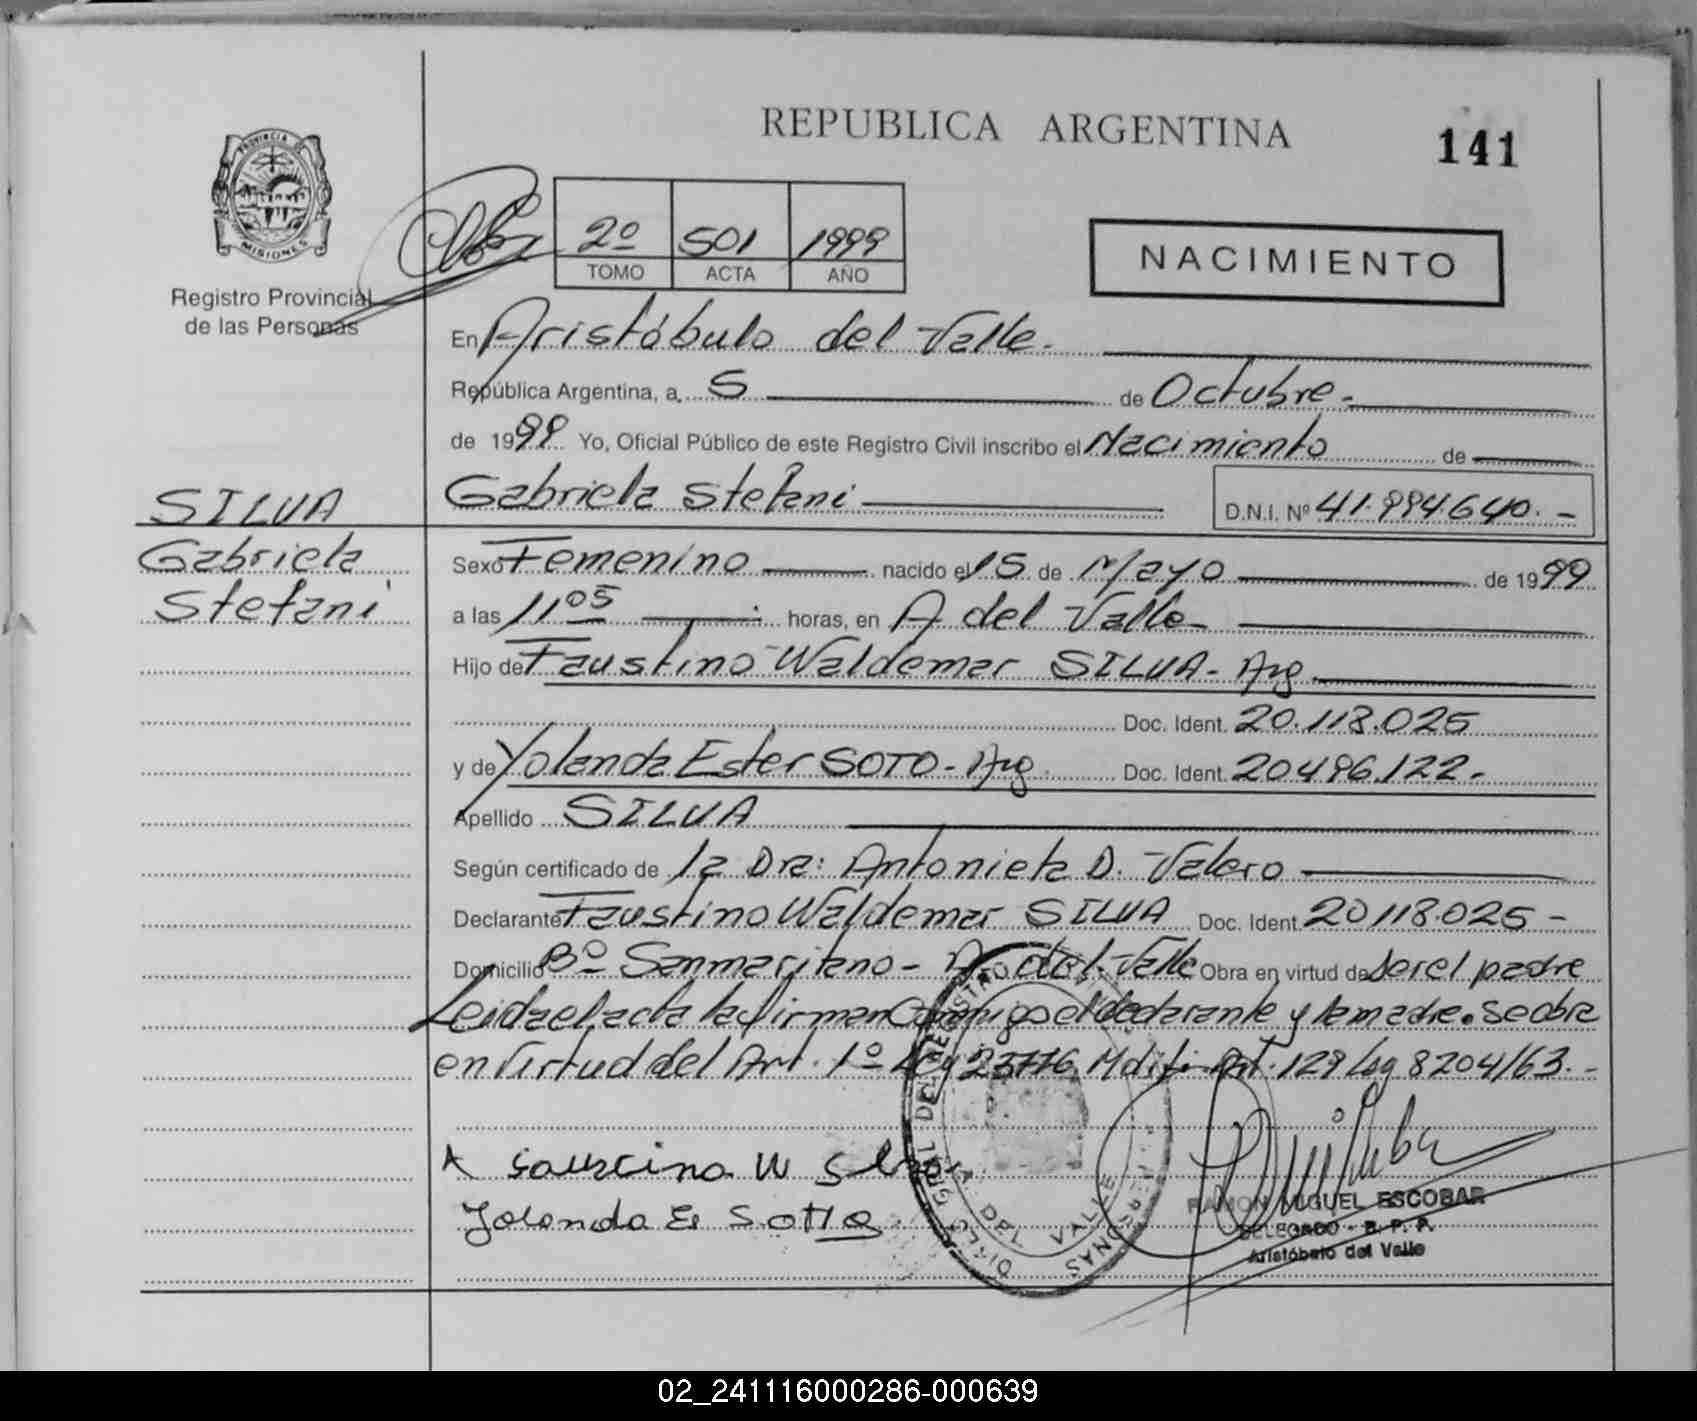 REPUBLICA ARGENTINA
141
PROVINCIA DE
MISIONES
Registro Provincial
de las Personas
2º 501 1999
TOMO ACTA AÑO
NACIMIENTO
En Aristóbulo del Valle.
República Argentina, a 5 de Octubre.
de 1999 Yo, Oficial Público de este Registro Civil inscribo el Nacimiento de
Gabriela Stefani D.N.I. Nº 41.994.640.-
SILVA
Gabriela
Stefani
Sexo Femenino nacido el 15 de Mayo de 1999
a las 11 05 horas, en A del Valle-
Hijo de Faustino Waldemar SILVA- Arg.
Doc. Ident. 20.118.025
y de Yolanda Ester SOTO- Arg. Doc. Ident. 20496.122-
Apellido SILVA
Según certificado de la Dra: Antonieta D. Valero
Declarante Faustino Waldemar SILVA Doc. Ident. 20118.025-
Domicilio Bº Sanmaritano- A. del Valle Obra en virtud de ser el padre
Leida el acta la firman Conmigo el declarante y la madre. Se obra
en Virtud del Art. 1º Ley 23776 Mdifi. Art. 129 Ley 8204/63.-
W
Yolanda E.
VALLE
RAMON MIGUEL ESCOBAR
DELEGADO - R. P. P.
Aristóbulo del Valle
02_241116000286-000639